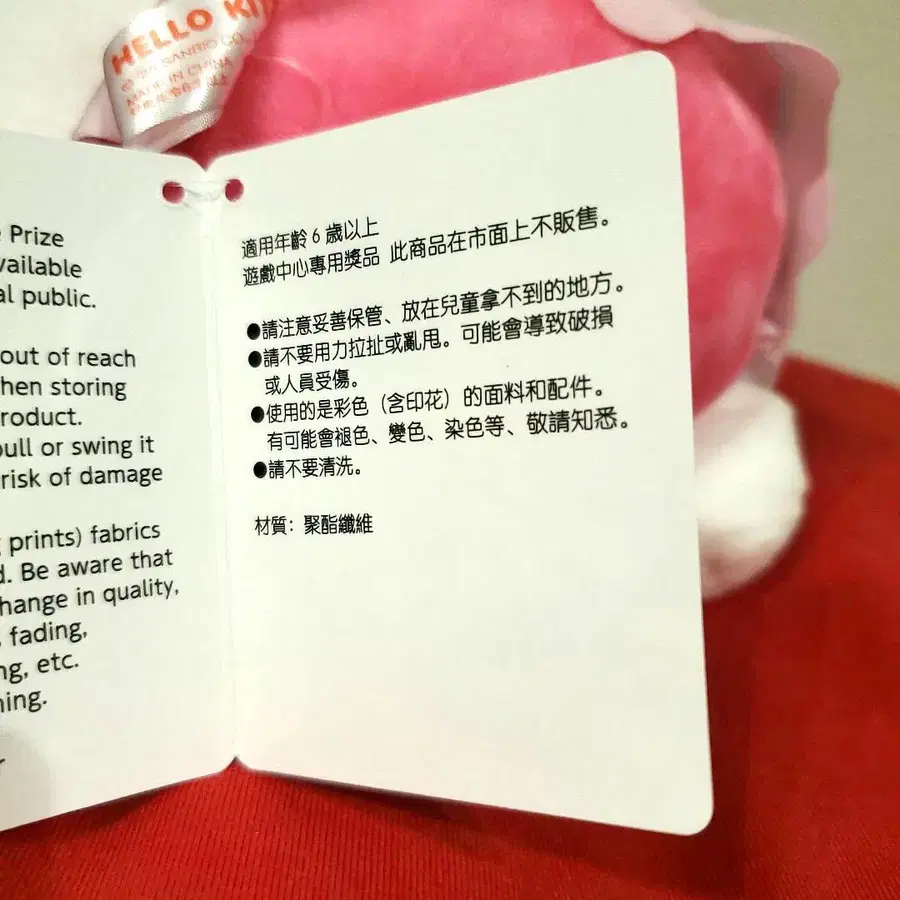 HELLO KIT
SANRIO CO.,
MADE IN CHINA
Prize
vailable
al public.
out of reach
hen storing
roduct.
pull or swing it
risk of damage
prints) fabrics
d. Be aware that
hange in quality,
fading,
ng, etc.
ning.
適用年齡6歲以上
遊戲中心專用獎品 此商品在市面上不販售。
●請注意妥善保管、放在兒童拿不到的地方。
●請不要用力拉扯或亂甩。可能會導致破損
或人員受傷。
●使用的是彩色（含印花）的面料和配件。
有可能會褪色、變色、染色等、敬請知悉。
●請不要清洗。
材質：聚酯纖維